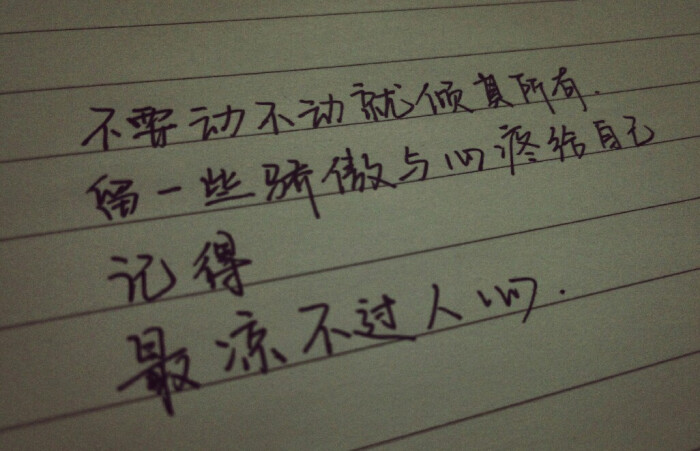 不要动不动就倾其所有.
留一些骄傲与心疼给自己
记得
最凉不过人心.